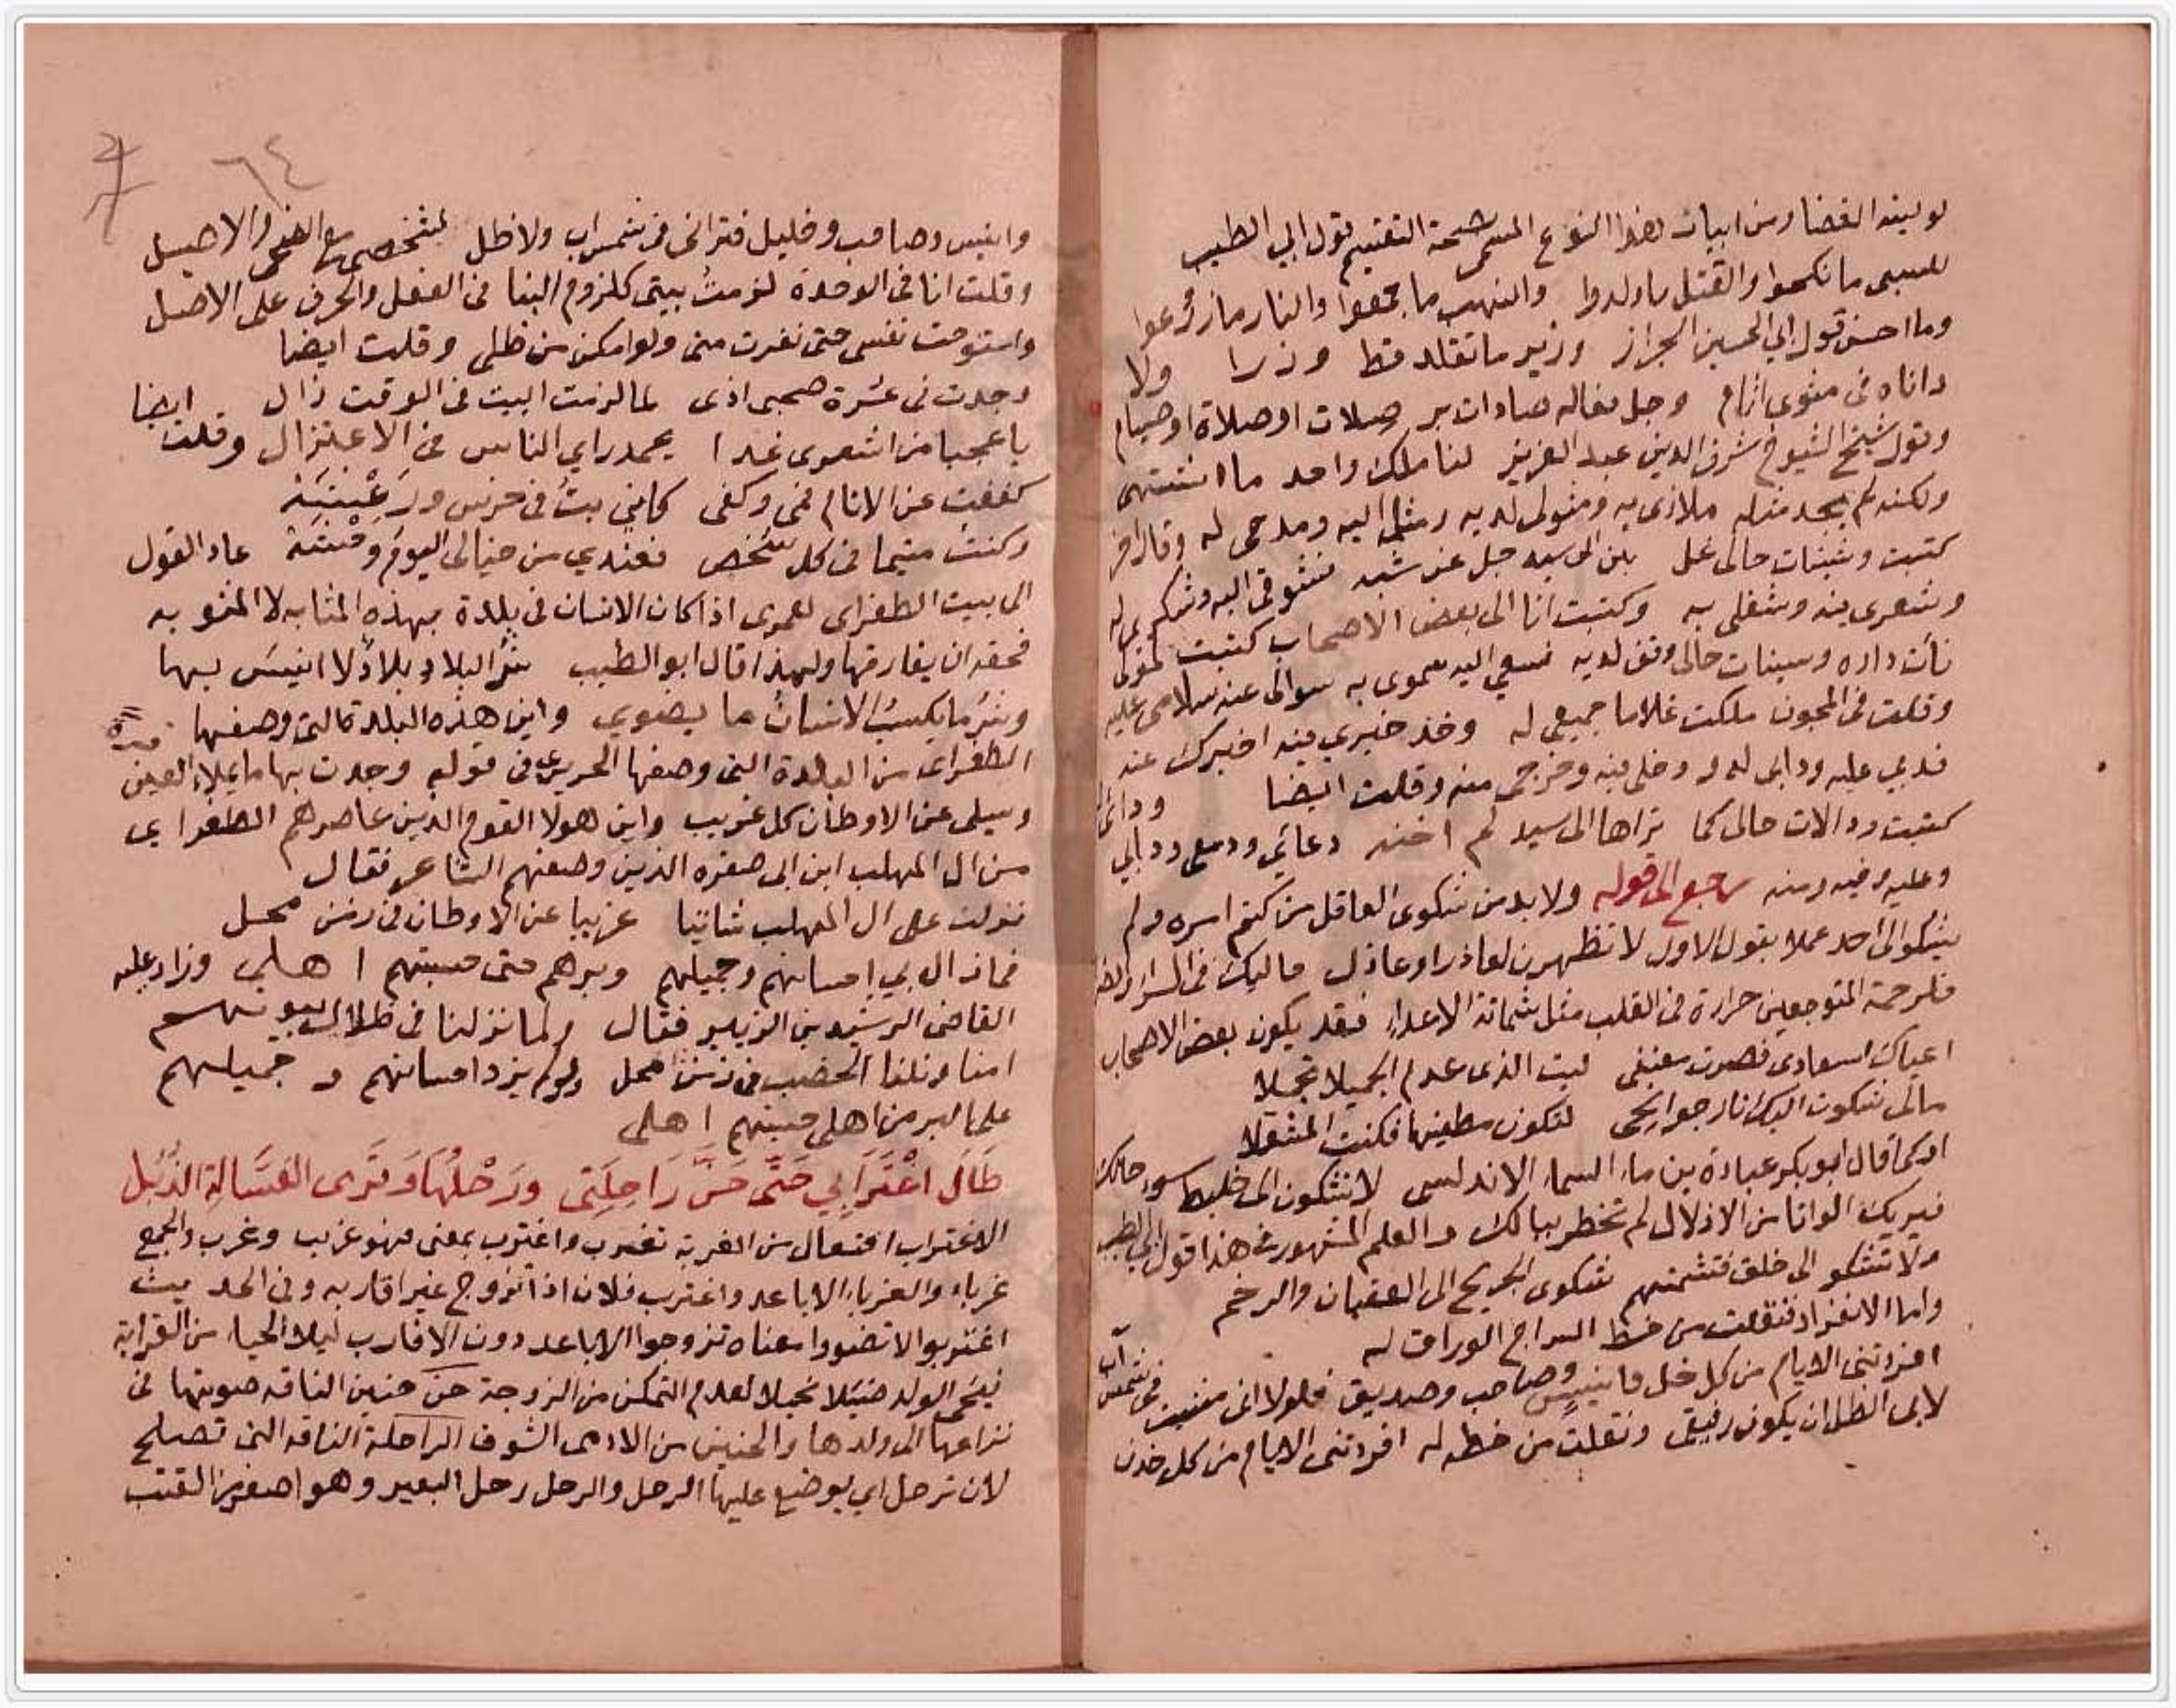 لو لينه الفضا ومن ابيات هذا النوع المسمى صحة التقسيم قول ابي الطيب
للسبى ما نكحوا والقتل ما ولدوا والنهب ما جمعوا والنار ما زرعوا
وما احسن قول ابي الحسين الجزار وزير ما تقلد قط وزرا ولا
داناه فى مثوى اثام وجل فعاله صادات بر صلات او صلاة او صيام
وقول شيخ الشيوخ شرف الدين عبد العزيز لنا ملك واحد ما اشتهى
ولكنه لم يجد مثله ملاذى به ومثولى لديه وميلى اليه ومدحى له وقال اخر
كتبت وشينات حالى على بلن الى سيد جل عن شبه تشوقى اليه وشكرى له
وشعرى فيه وشغلى به وكتبت انا الى بعض الاصحاب كتبت لمولى
نأت داره وسينات حالى وقف لديه سعي اليه سموى به سوالى عنه سلامى عليه
وقلت فى المجون ملكت غلاما جميعى له وخذ خبرى فيه اخبرك عنه
فدبي عليه ودابى له ودخلى فيه وخرجى منه وقلت ايضا ودائى له
كتبت ودالات حالى كما تراها الى سيد لم اخنه دعائي ودمعى ودابي
وعليه وفيه ومنه رجع الى قوله ولا بد من شكوى العاقل من كتم اسره ولم
يشكو الى احد عملا بقول الاول لا تظهرن لعاذر او عاذل حاليك فى السراء والضراء
فلرحمة المتوجعين حرارة فى القلب مثل شماتة الاعداء فقد يكون بعض الاصحاب
اعياك اسعادى فصرت معنفى ليت الذى عدم الجميلا تجملا
مالى شكوت اليك نار جوانحى لتكون مطفيها فكنت المشعلا
او كما قال ابو بكر عبادة بن ماء السماء الاندلسى لا تشكون الى خليط سوء حالك
فيريك الوانا من الاذلال لم تخطر ببالك والعلم المشهور فى هذا قول ابى الطيب
ولا تشكو الى خلق فتشمتهم شكوى الجريح الى العقبان والرخم
واما الانفراد فنقلت من خط السراج الوراق له
افردتنى الايام من كل خل وانيس وصاحب وصديق فلولا انى مشيت فى شمس آب
لابى الظل ان يكون رفيقى ونقلت من خطه له افردتنى الايام من كل خدن
٦٤
وانيس وصاحب وخليل فترانى فى شمس آب ولا ظل لشخصى مع الضحى والاصيل
وقلت انا فى الوحدة لزمت بيتى كلزوم البنا فى الفعل والحرف على الاصل
واستوحشت نفسى حتى نفرت منى ولو امكن من ظلى وقلت ايضا
وجدت فى عشرة صحبى اذى لما لزمت البيت فى الوقت زال ايضا
يا عجبا من اشعرى غدا يحمد راي الناس فى الاعتزال وقلت
كففت عن الانام فمى وكفى كانى بت فى حرس ورغبنة
وكنت متيما فى كل شخص فعندي من خيالى اليوم وحشة عاد القول
الى بيت الطغراى لعمرى اذا كان الانسان فى بلدة بهذه المثابه لا المنوه به
فحقه ان يفارقها ولهذا قال ابو الطيب شر البلاد بلاد لا انيس بها
وشر ما يكسب الانسان ما يصوي واين هذه البلد كالتى وصفها
الطغراى من البلدة التى وصفها الحريرى فى قوله وجدت بها ما يملا العين قرة
ويسلى عن الاوطان كل غريب واين هولا القوم الذين عاصرهم الطغراي
من ال المهلب ابن ابى صفره الذين وصفهم الشاعر فقال
نزلت على ال المهلب شاتيا غريبا عن الاوطان فى زمن محل
فما زال بي احسانهم وجميلهم وبرهم حتى حسبتهم اهلي وزاد عليه
القاضى الرشيد بن الزبير فقال ولما نزلنا فى ظلال بيوتهم
امنا ونلنا الخصب فى زمن محل ولو لم يزد احسانهم وجميلهم
على البر من اهلى حسبتهم اهلى
طَالَ اغْتِرَابِي حَتَّى حَنَّ رَاحِلَتِى وَرَحْلُهَا وَقَرَى العَسَّالَةِ الذُبُلِ
الاغتراب افتعال من الغربة تغرب واغترب بمعنى فهو غريب وغرب والجمع
غرباء والغرباء الاباعد واغترب فلان اذا تزوج غير اقاربه وفى الحديث
اغتربوا لا تضووا معناه تزوجوا الاباعد دون الاقارب ليلا الحياء من القرابة
فيجئ الولد ضئيلا نحيلا لعدم التمكن من الزوجة حن حنين الناقه صوتها فى
نزاعها الى ولدها والحنين من الادمى الشوق الراحلة الناقه التى تصلح
لان ترحل اي يوضع عليها الرحل والرحل رحل البعير وهو اصغر من القتب